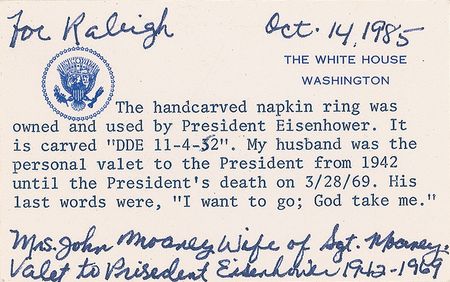 For Raleigh Oct. 14, 1985
THE WHITE HOUSE
WASHINGTON
The handcarved napkin ring was
owned and used by President Eisenhower. It
is carved "DDE 11-4-52". My husband was the
personal valet to the President from 1942
until the President's death on 3/28/69. His
last words were, "I want to go; God take me."
Mrs. John Moaney Wife of Sgt. Moaney.
Valet to President Eisenhower 1942-1969